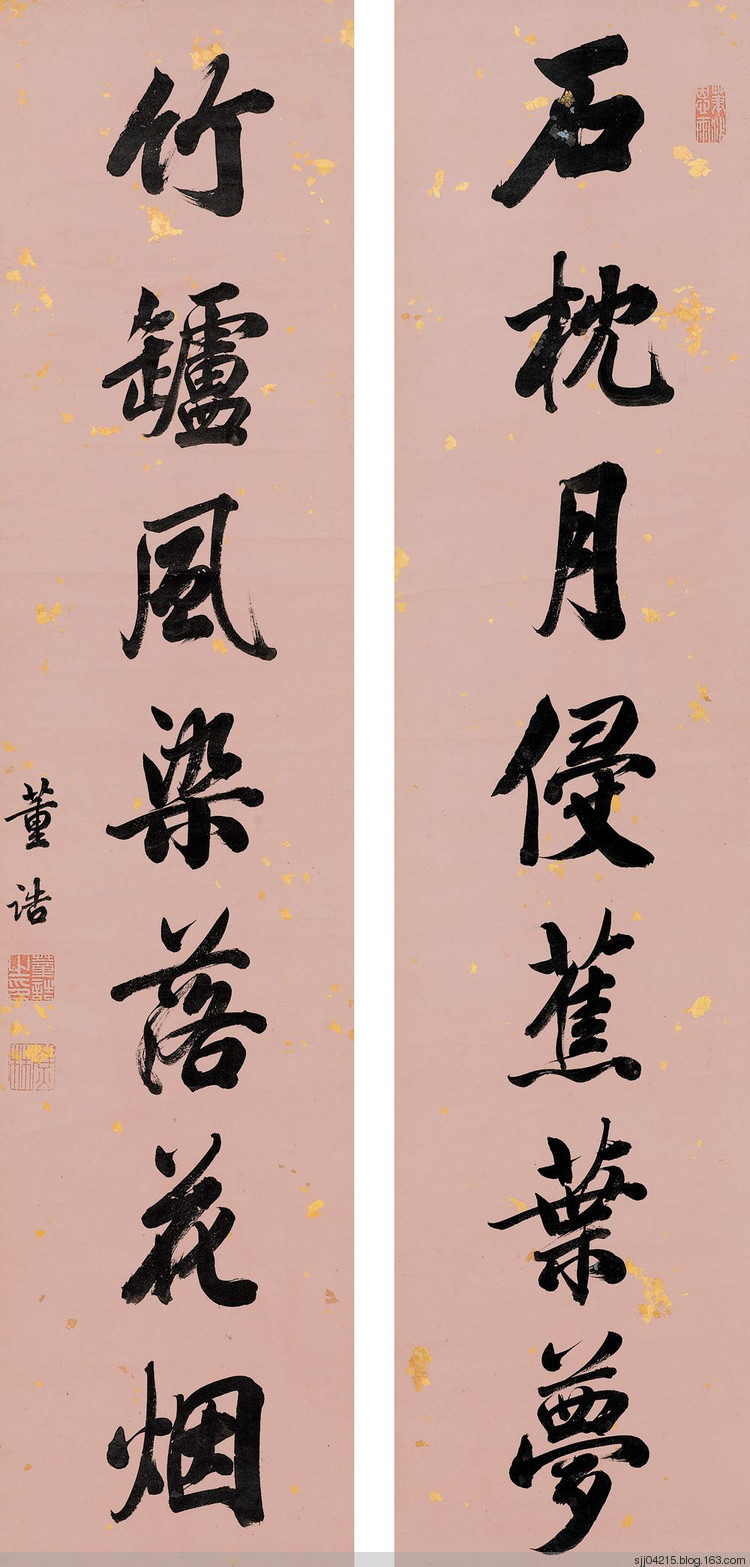 石枕月侵蕉葉夢
竹罏風染落花烟
董誥
sjj04215.blog.163.com